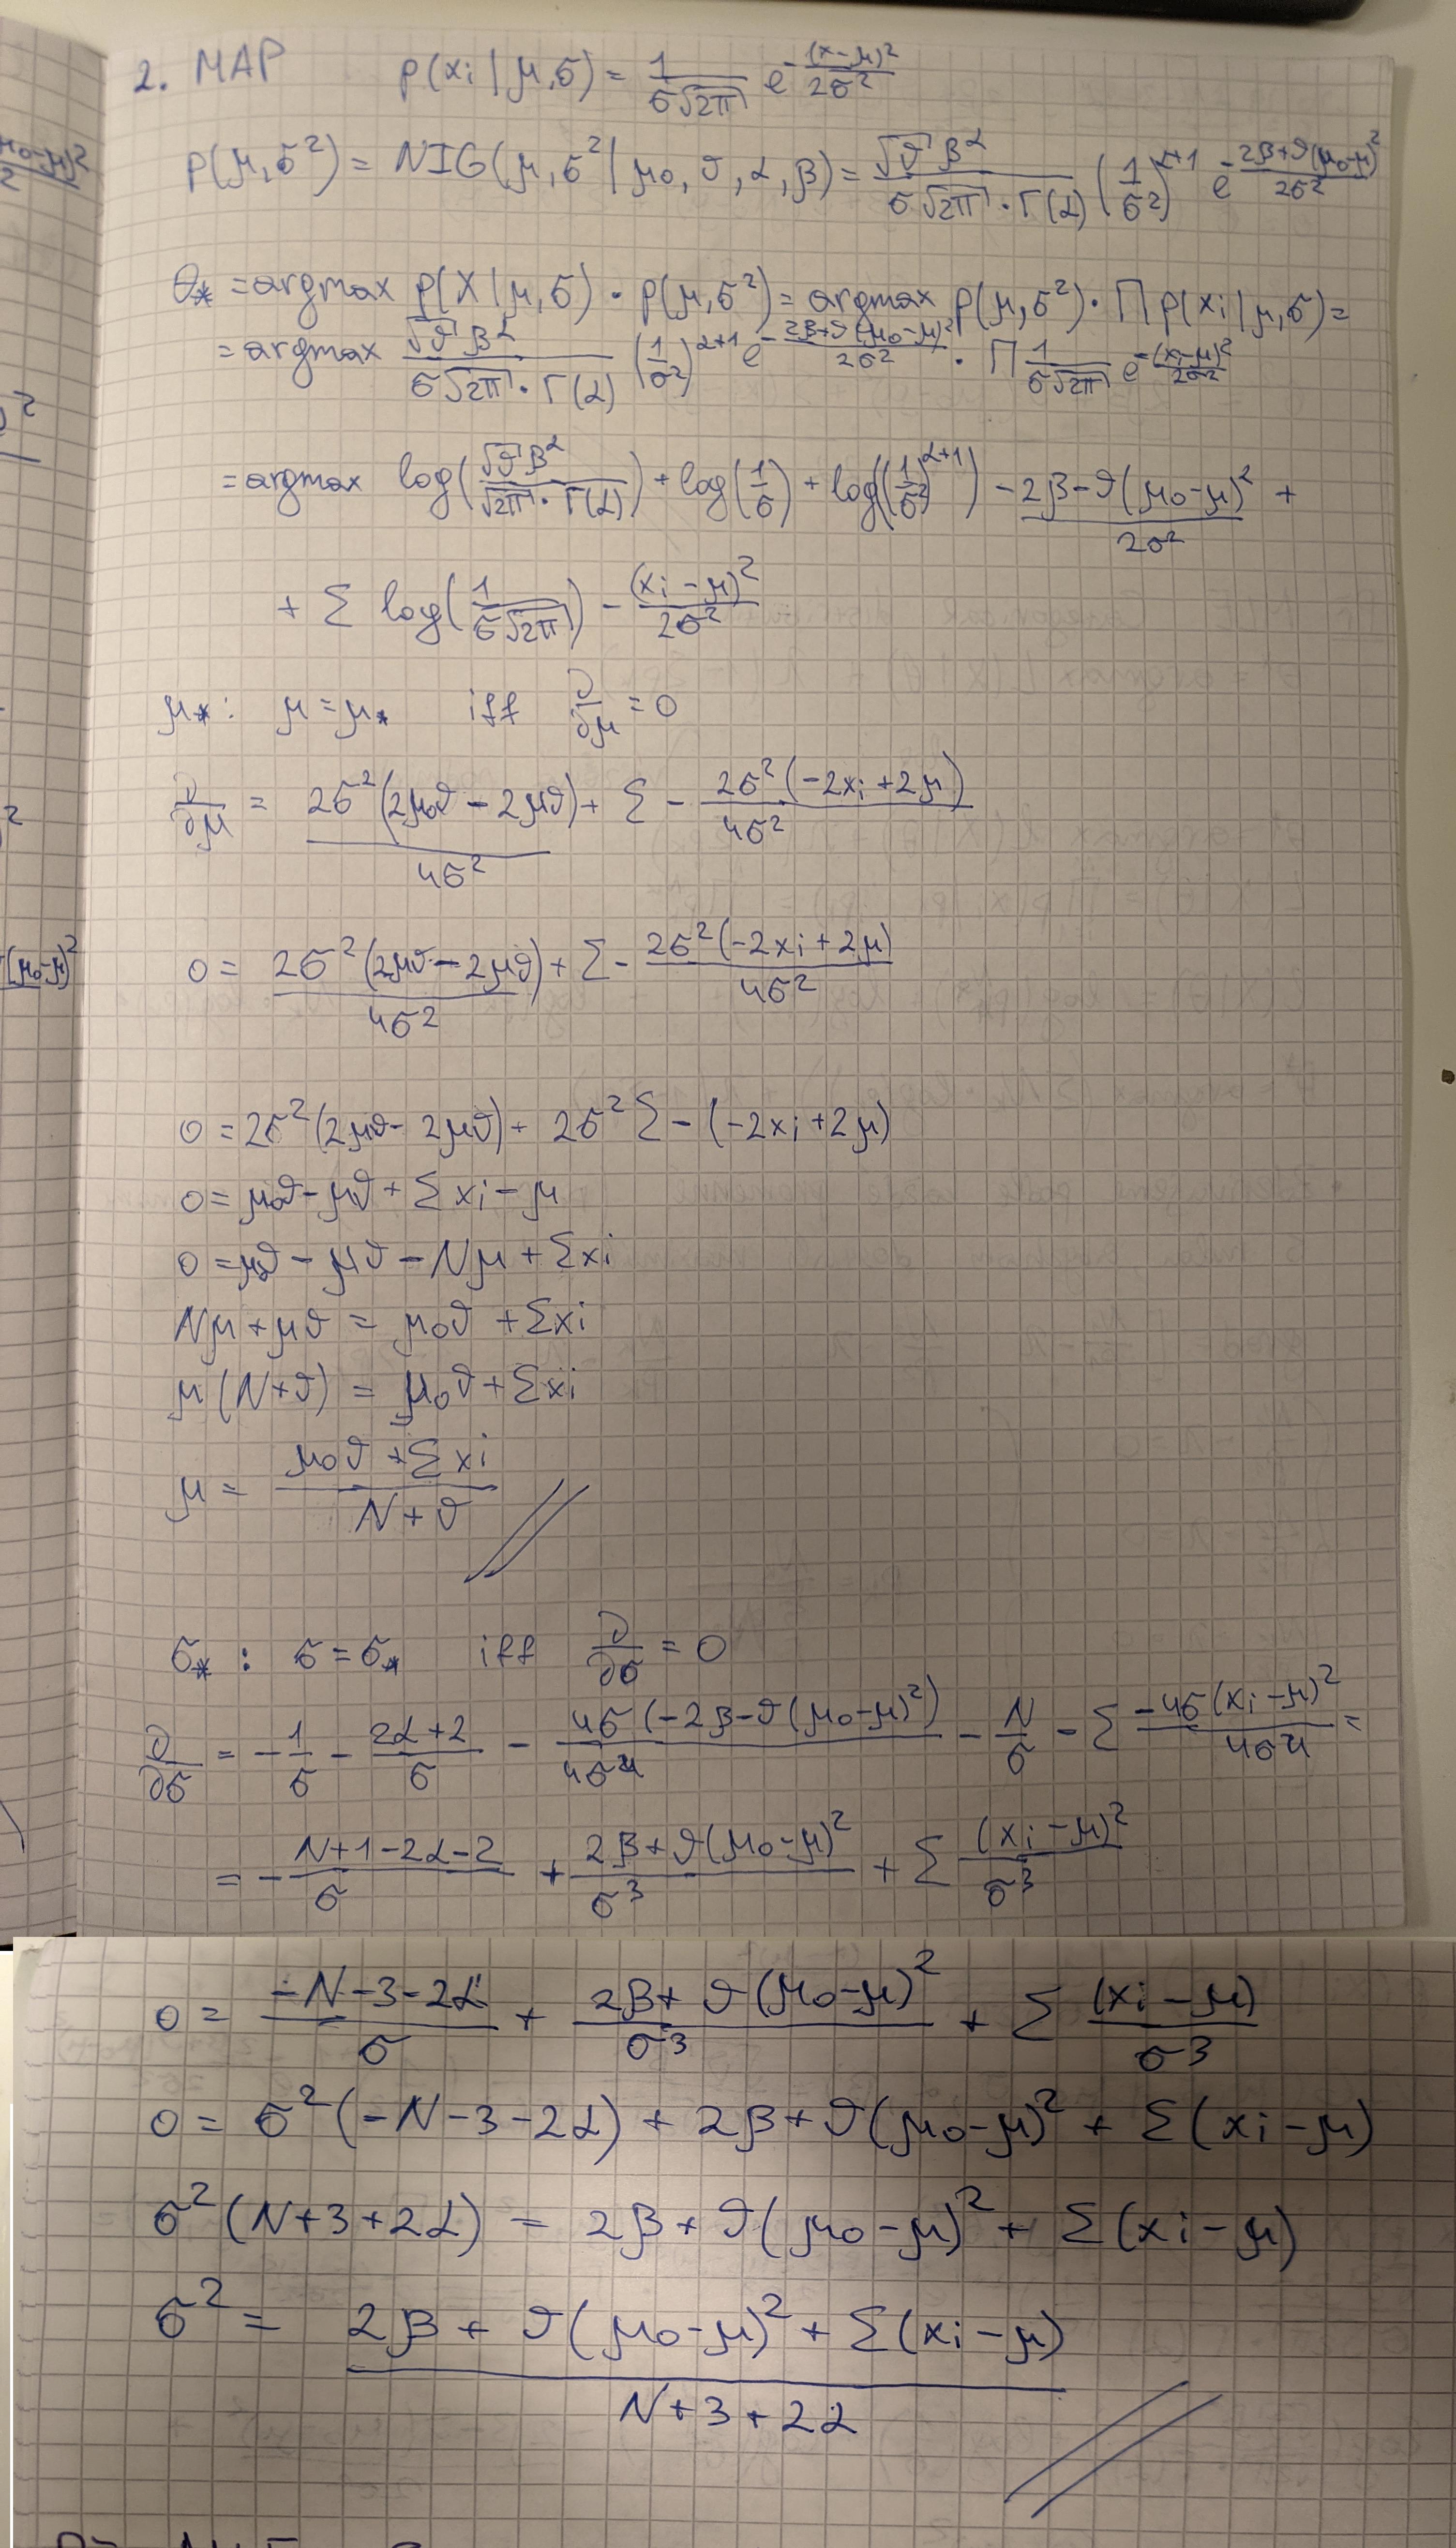 2. MAP p(xi|μ,σ) = 1/(σ√2π) e^(-(x-μ)²/2σ²)
p(μ,σ²) = NIG(μ,σ²|μ0,ϑ,α,β) = √ϑ β^α/(σ√2π · Γ(α)) (1/σ²)^(α+1) e^(-(2β+ϑ(μ0-μ)²)/2σ²)
θ* = argmax p(X|μ,σ) · p(μ,σ²) = argmax p(μ,σ²) · Π p(xi|μ,σ) =
= argmax √ϑ β^α/(σ√2π · Γ(α)) (1/σ²)^(α+1) e^(-(2β+ϑ(μ0-μ)²)/2σ²) · Π 1/(σ√2π) e^(-(xi-μ)²/2σ²)
= argmax log(√ϑ β^α/(√2π · Γ(α))) + log(1/σ) + log((1/σ²)^(α+1)) (-2β-ϑ(μ0-μ)²)/2σ² +
+ Σ log(1/(σ√2π)) - (xi-μ)²/2σ²
μ*: μ=μ* iff ∂/∂μ = 0
∂/∂μ = 2σ²(2μ0ϑ - 2μϑ)/4σ² + Σ - 2σ²(-2xi+2μ)/4σ²
0 = 2σ²(2μϑ - 2μϑ)/4σ² + Σ - 2σ²(-2xi+2μ)/4σ²
0 = 2σ²(2μϑ - 2μϑ) + 2σ² Σ - (-2xi+2μ)
0 = μ0ϑ - μϑ + Σ xi - μ
0 = μ0ϑ - μϑ - Nμ + Σxi
Nμ + μϑ = μ0ϑ + Σxi
μ(N+ϑ) = μ0ϑ + Σxi
μ = (μ0ϑ + Σxi)/(N+ϑ)
σ*: σ=σ* iff ∂/∂σ = 0
∂/∂σ = -1/σ - (2α+2)/σ - 4σ(-2β-ϑ(μ0-μ)²)/4σ⁴ - N/σ - Σ -4σ(xi-μ)²/4σ⁴ =
= - (N+1-2α-2)/σ + (2β+ϑ(μ0-μ)²)/σ³ + Σ (xi-μ)²/σ³
0 = (-N-3-2α)/σ + (2β+ϑ(μ0-μ)²)/σ³ + Σ (xi-μ)/σ³
0 = σ²(-N-3-2α) + 2β+ϑ(μ0-μ)² + Σ(xi-μ)
σ²(N+3+2α) = 2β+ϑ(μ0-μ)² + Σ(xi-μ)
σ² = (2β + ϑ(μ0-μ)² + Σ(xi-μ))/(N+3+2α)